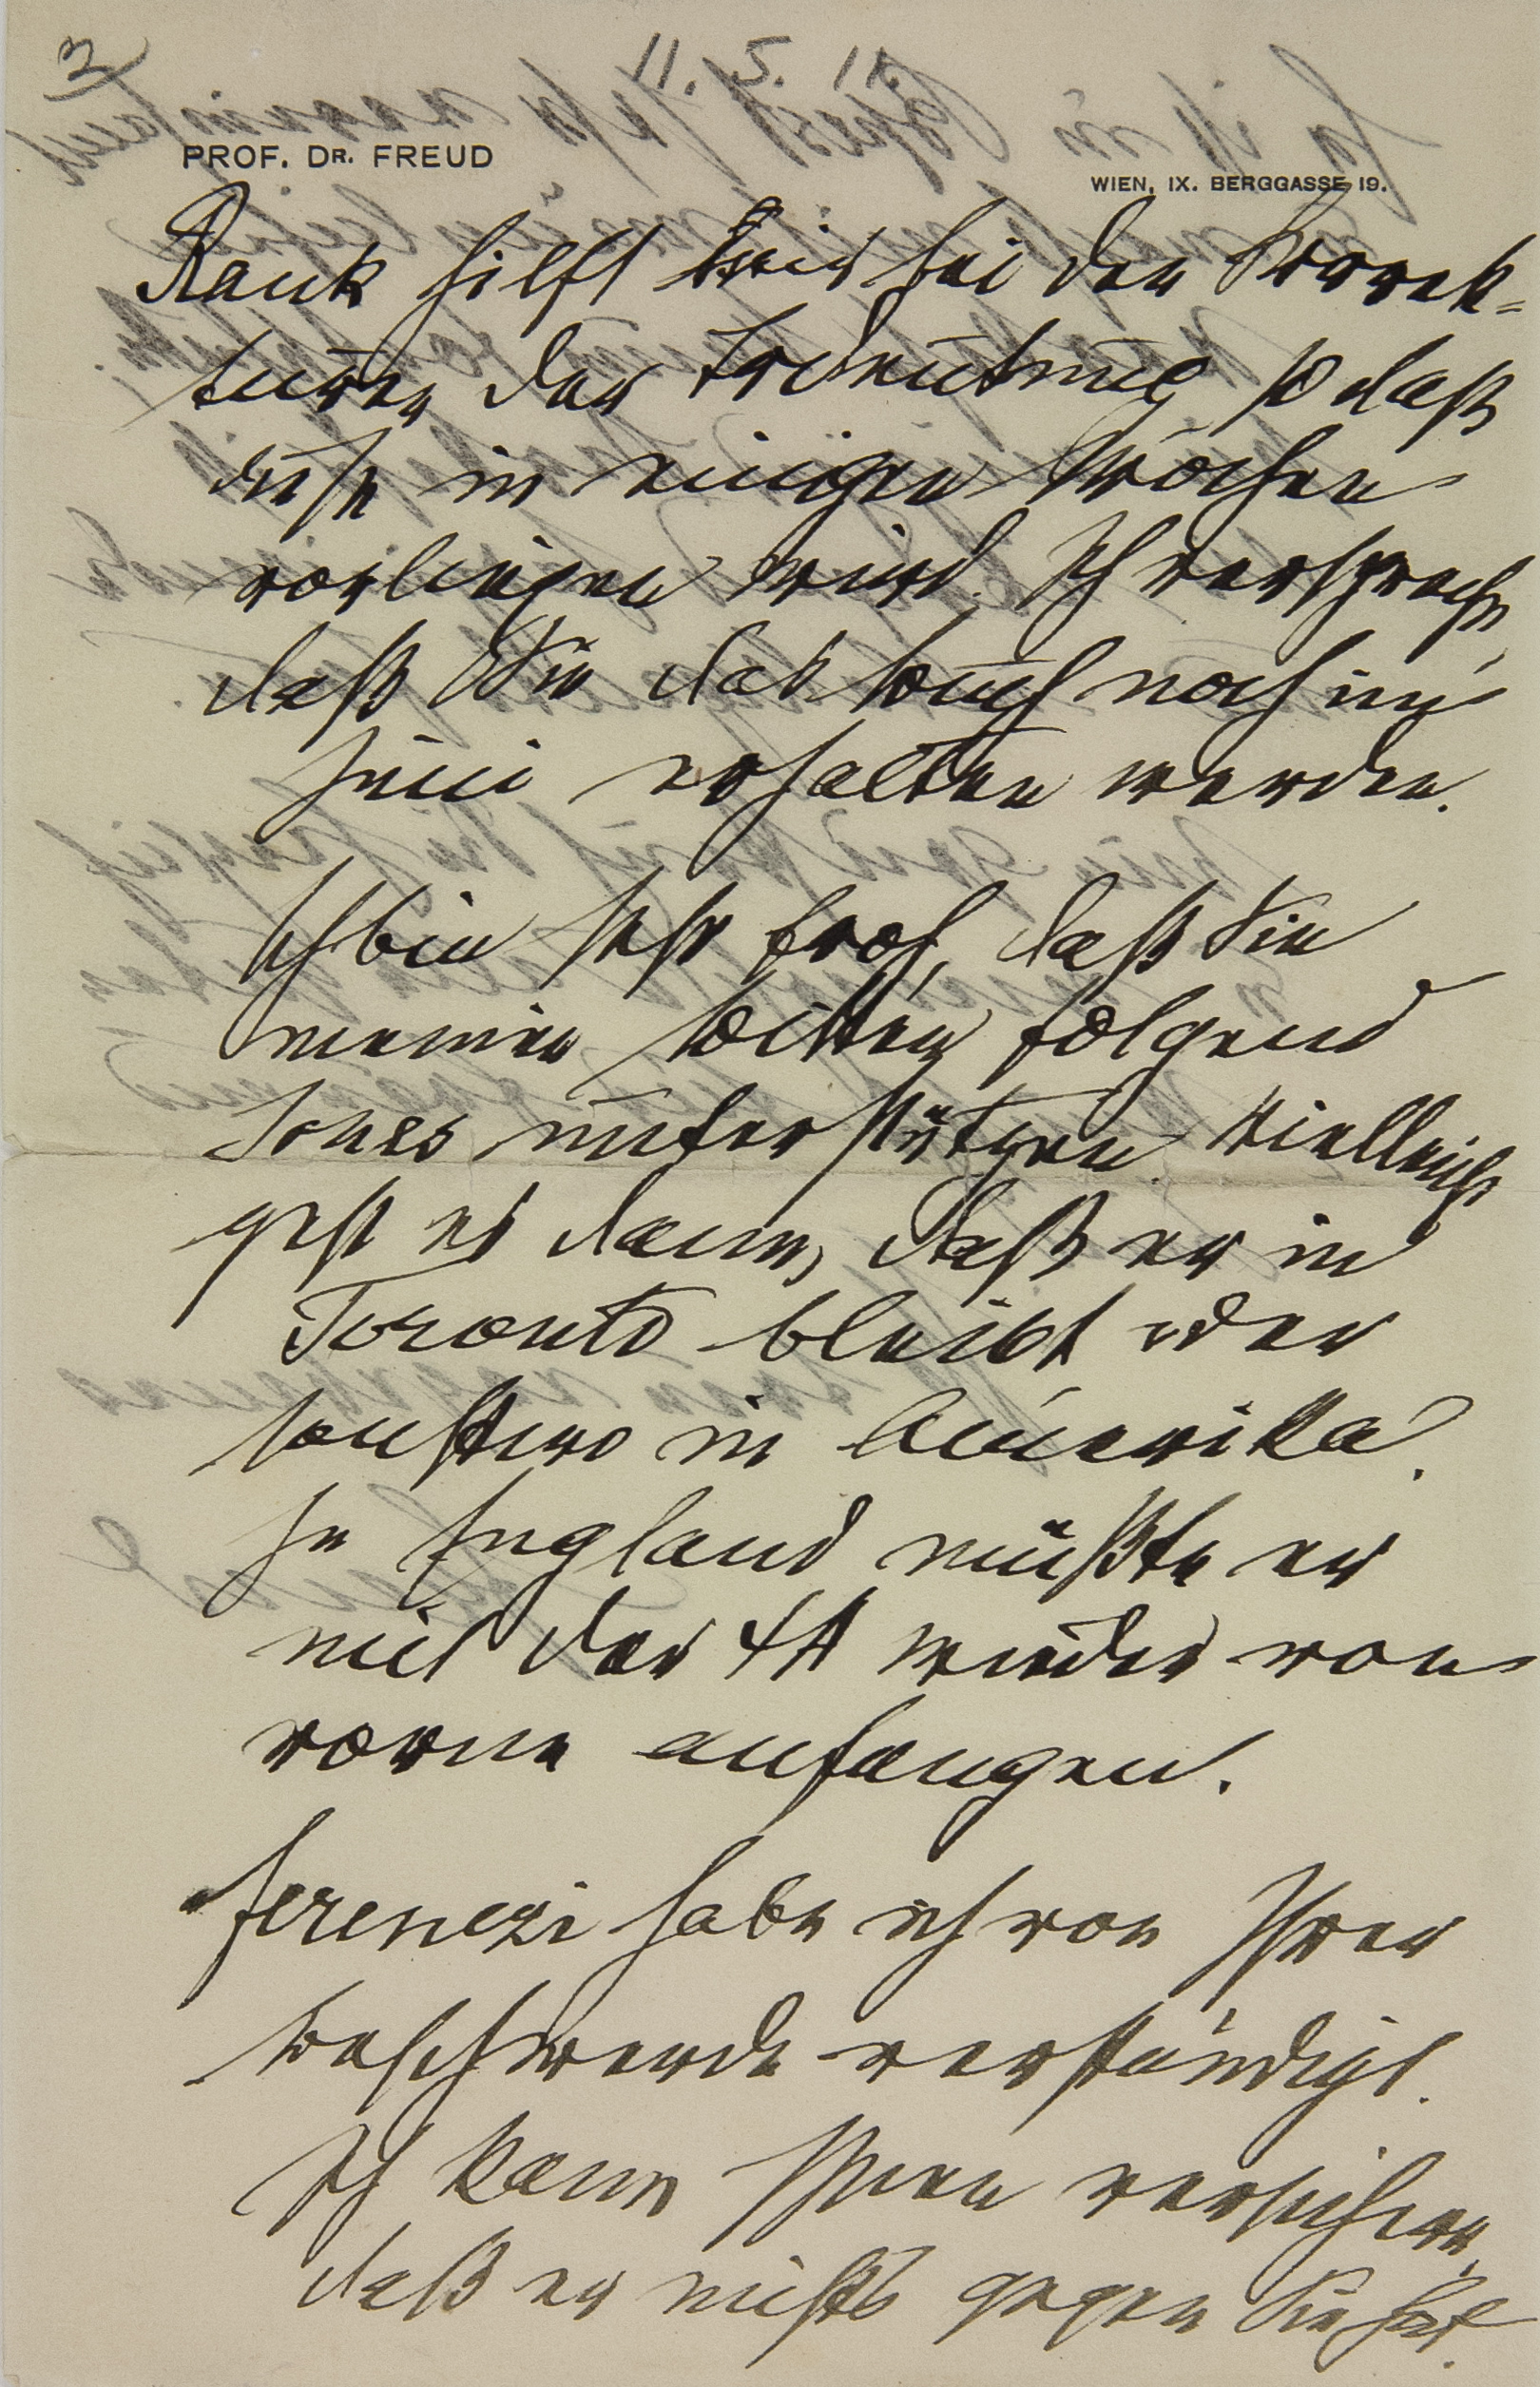 3
11. 5. 11.
PROF. DR. FREUD
WIEN, IX. BERGGASSE 19.
Rank hilft mir bei den Korrek=
turen der Trdeutung so daß
diese in einigen Wochen
vorliegen wird. Ich verspreche,
daß Sie das Buch noch im
Juni erhalten werden.
Ich bin sehr froh, daß Sie
meinen Bitten folgend
Jones unterstützen. Vielleicht
geht es dann, daß er in
Toronto bleibt oder
sonstwo in Amerika.
In England müßte er
mit der ΨA wieder von
vorne anfangen.
Ferenczi habe ich von Ihrer
Beschwerde verständigt.
Ich kann Ihnen versichern,
daß er nichts gegen Sie hat.